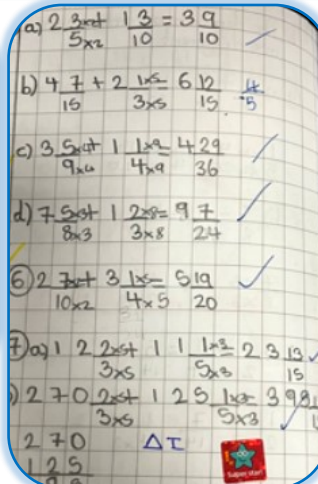 a) 2 3×2/5×2 + 1 3/10 = 3 9/10
b) 4 7/15 + 2 1×5/3×5 = 6 12/15 4/5
c) 3 5×4/9×4 + 1 1×9/4×9 = 4 29/36
d) 7 5×3/8×3 + 1 2×8/3×8 = 9 7/24
6) 2 7×2/10×2 + 3 1×5/4×5 = 5 19/20
7) a) 12 2×5/3×5 + 11 1×3/5×3 = 23 13/15
) 270 2×5/3×5 + 125 1×3/5×3 = 39
270 ΔI
125
Super star!